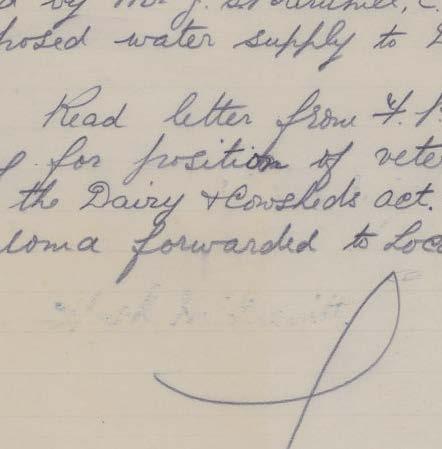 by Mr J.
posed water supply to
Read letter from F.
for position of vete
the Dairy & Cowsheds act.
loma forwarded to Loca